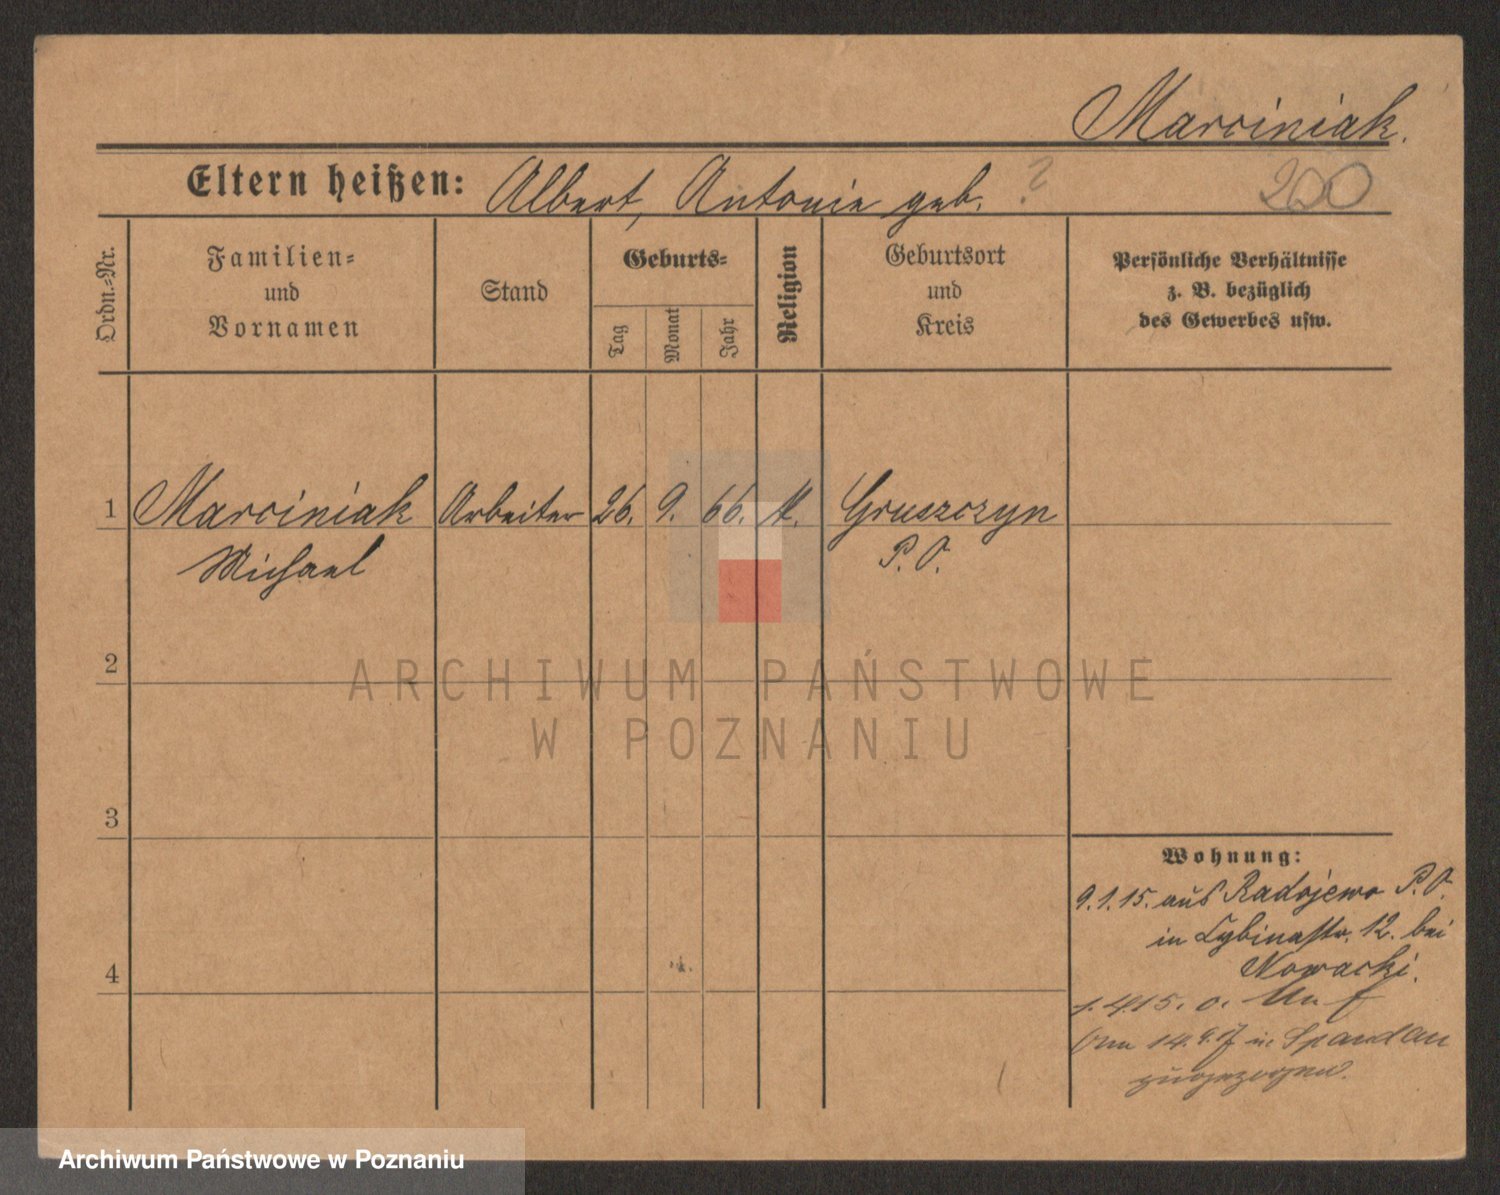 Marciniak.
Eltern heißen: Albert, Antonie geb. ?
200
Ordn.-Nr.
Familien-
und
Vornamen
Stand
Geburts-
Tag
Monat
Jahr
Religion
Geburtsort
und
Kreis
Persönliche Verhältnisse
z. B. bezüglich
des Gewerbes usw.
1 Marciniak Arbeiter 26. 9. 66. K. Gruszczyn
Michael P. O.
2
ARCHIWUM PAŃSTWOWE
W POZNANIU
3
Wohnung:
9.1.15. aus Radojewo P. O.
in Cybinastr. 12. bei
Nowacki.
4
1.4.15. o.
14.9.17 in Spandau
zugezogen.
Archiwum Państwowe w Poznaniu